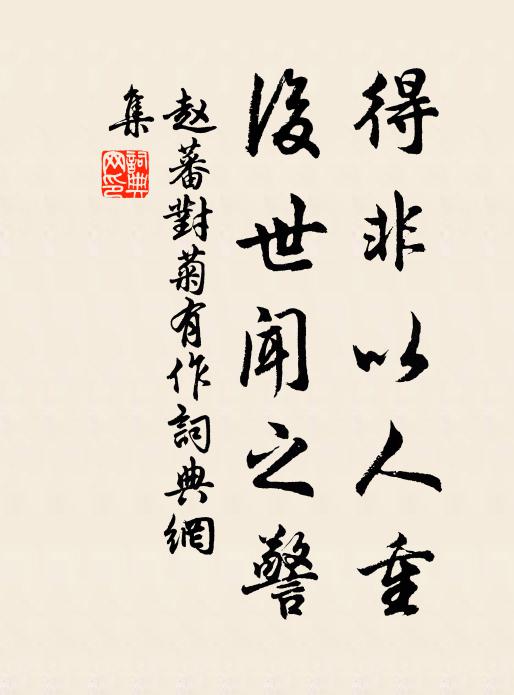 得非以人重
後世闻之警
赵蕃對菊有作詞典網
集
詞典
网印